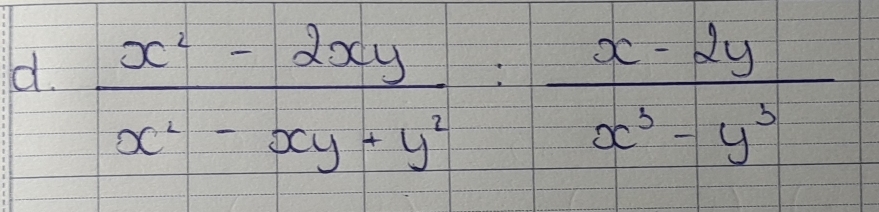 d. \frac{x² - 2xy}{x² - xy + y²} : \frac{x - 2y}{x³ - y³}